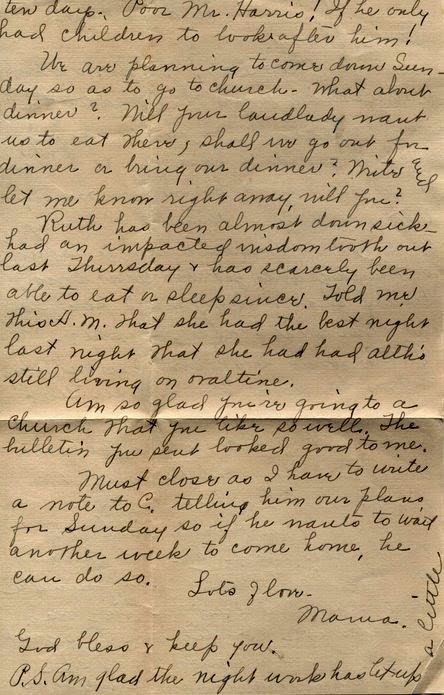 ten days. Poor Mr. Harris! If he only
had children to look after him!
We are planning to come down Sun-
day so as to go to church - What about
dinner? Will your landlady want
us to eat there, shall we go out for
dinner or bring our dinner? Write and
let me know right away, will you?
Ruth has been almost down sick -
had an impacted wisdom tooth out
last Thursday & has scarcely been
able to eat or sleep since. Told me
this A.M. that she had the best night
last night that she had had altho
still living on ovaltine.
Am so glad you're going to a
church that you like so well. The
bulletin you sent looked good to me.
Must close as I have to write
a note to C. telling him our plans
for Sunday so if he wants to wait
another week to come home, he
can do so.
Lots of love -
Mama.
God bless & keep you.
P.S. Am glad the night work has let up
a little